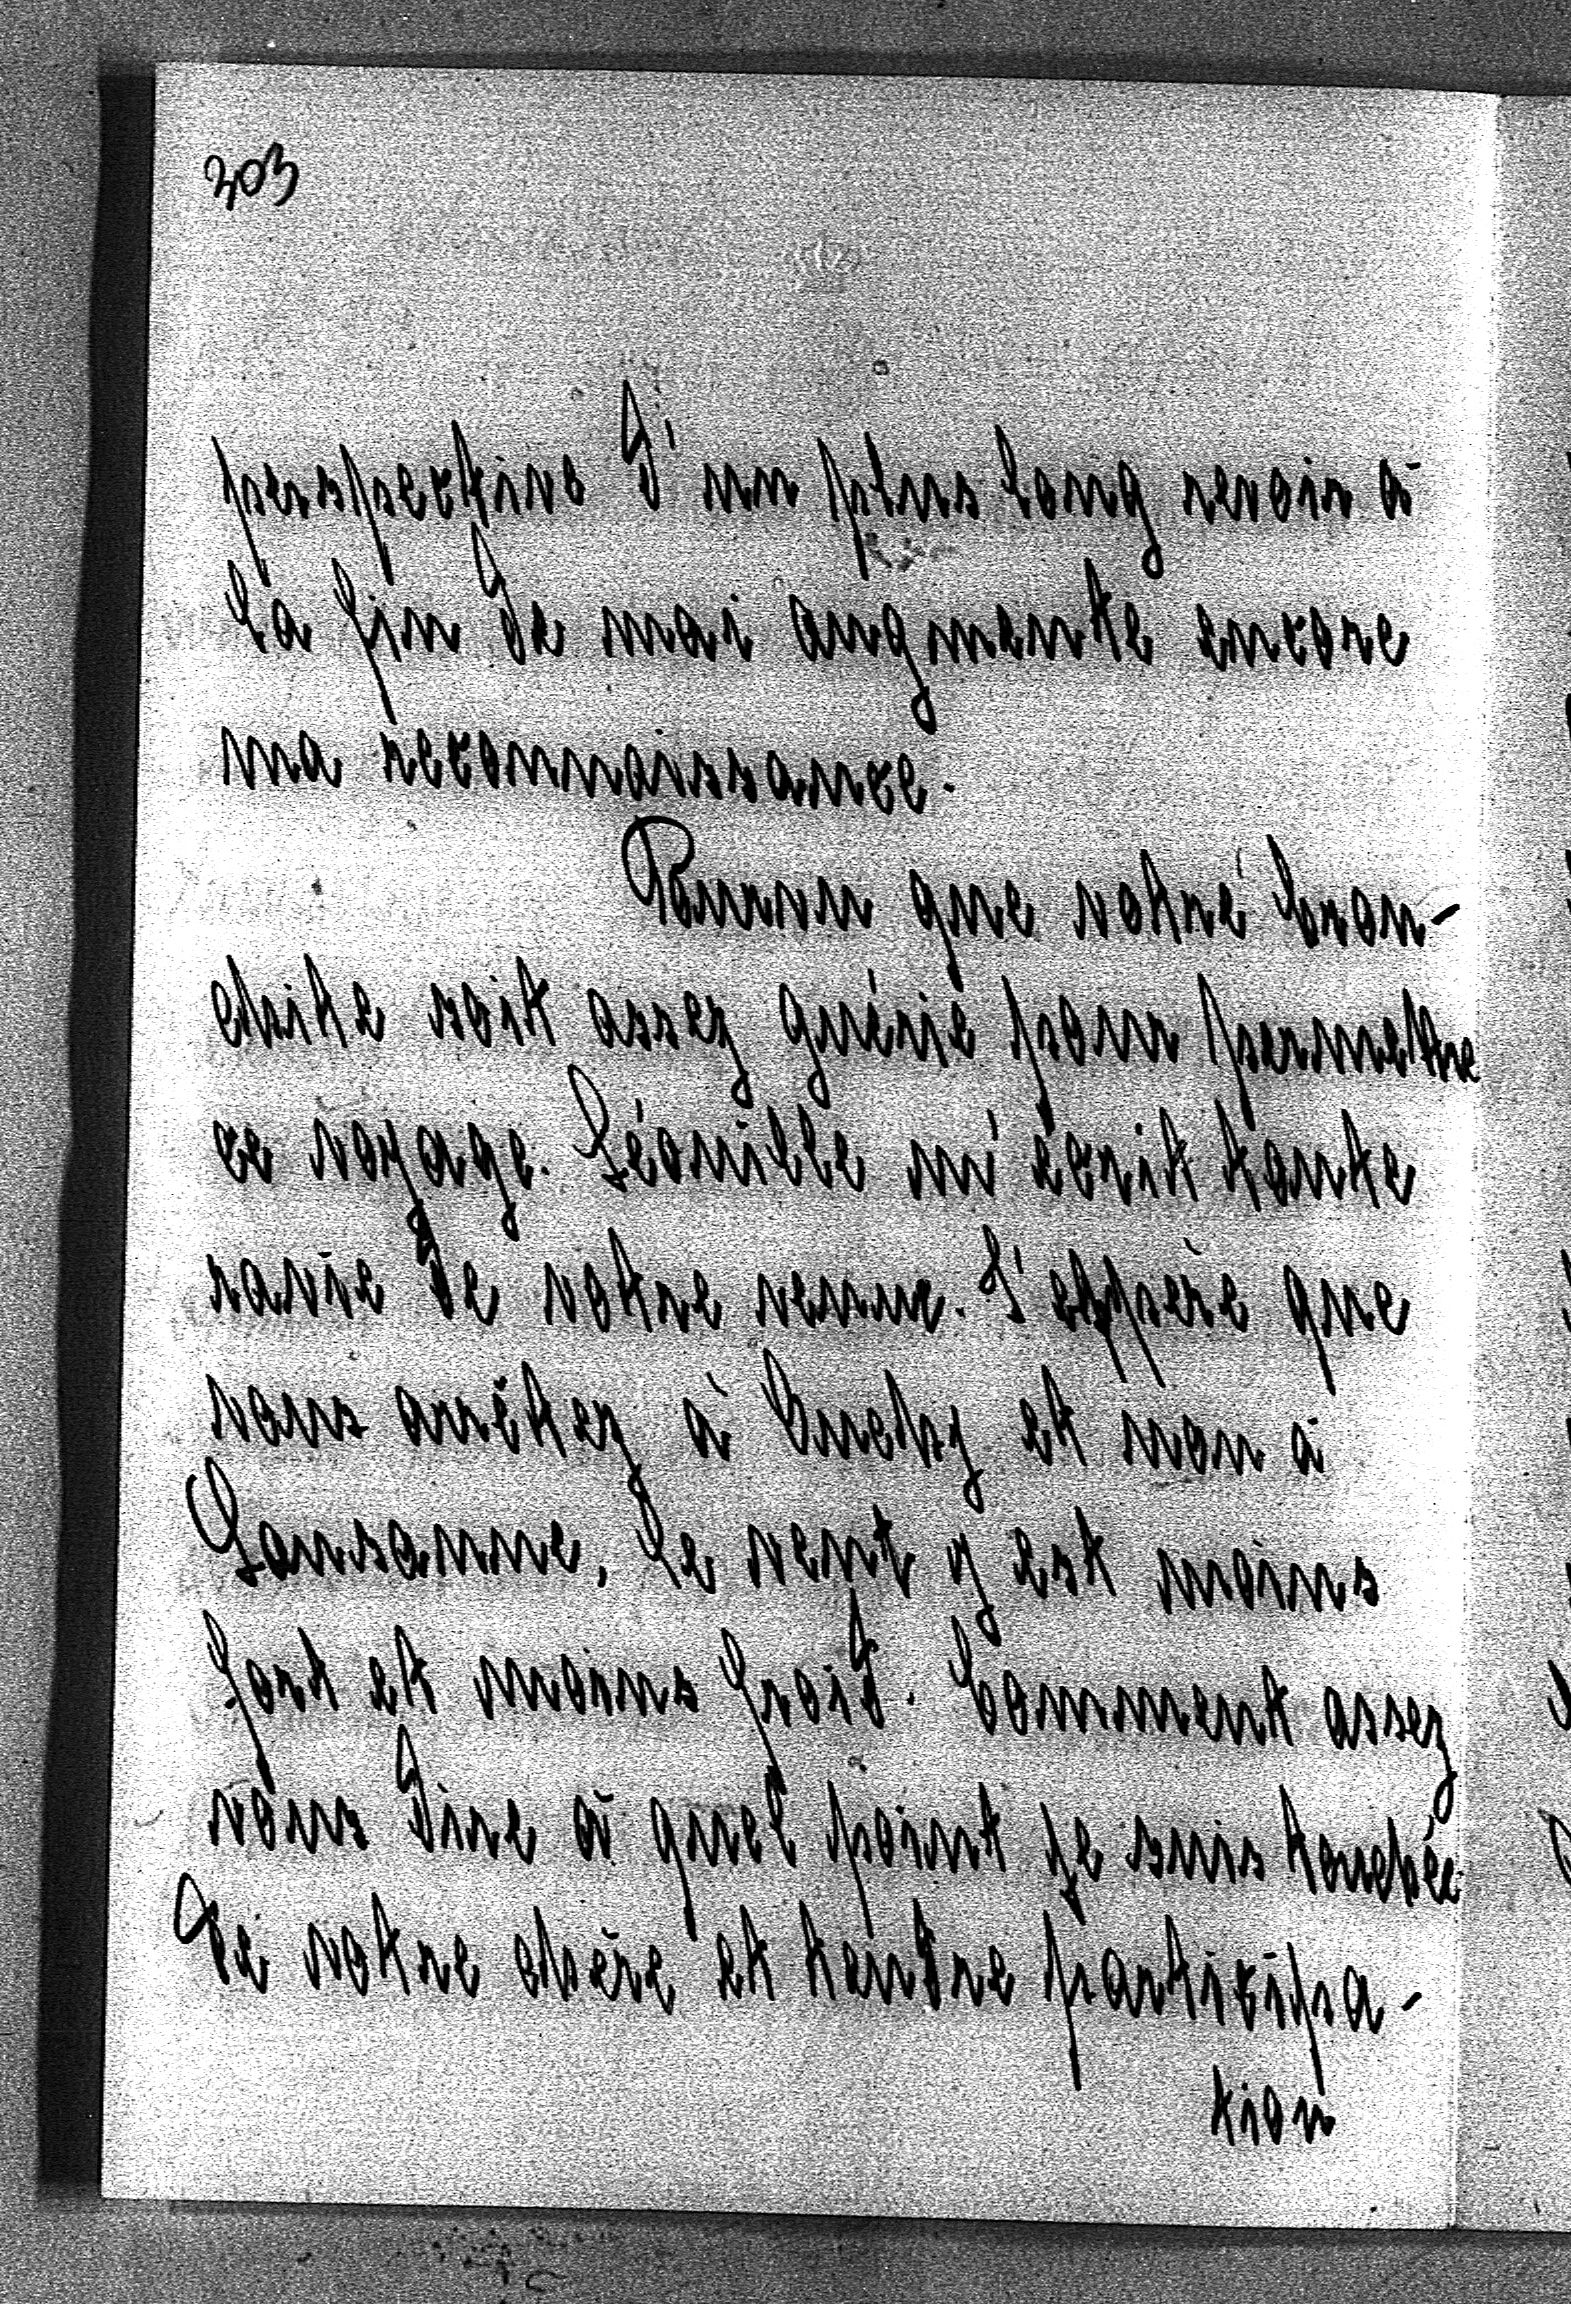 303
perspective d'un plus long revoir à
la fin de mai augmente encore
ma reconnaissance.
Pourvu que votre bron-
chite soit assez guérie pour permettre
ce voyage. Léonille m'écrit toute
ravie de votre venue. J'espère que
vous arrêtez à Ouchy et non à
Lausanne, le vent y est moins
fort et moins froid. Comment assez
vous dire à quel point je suis touchée
de votre chère et tendre participa-
tion